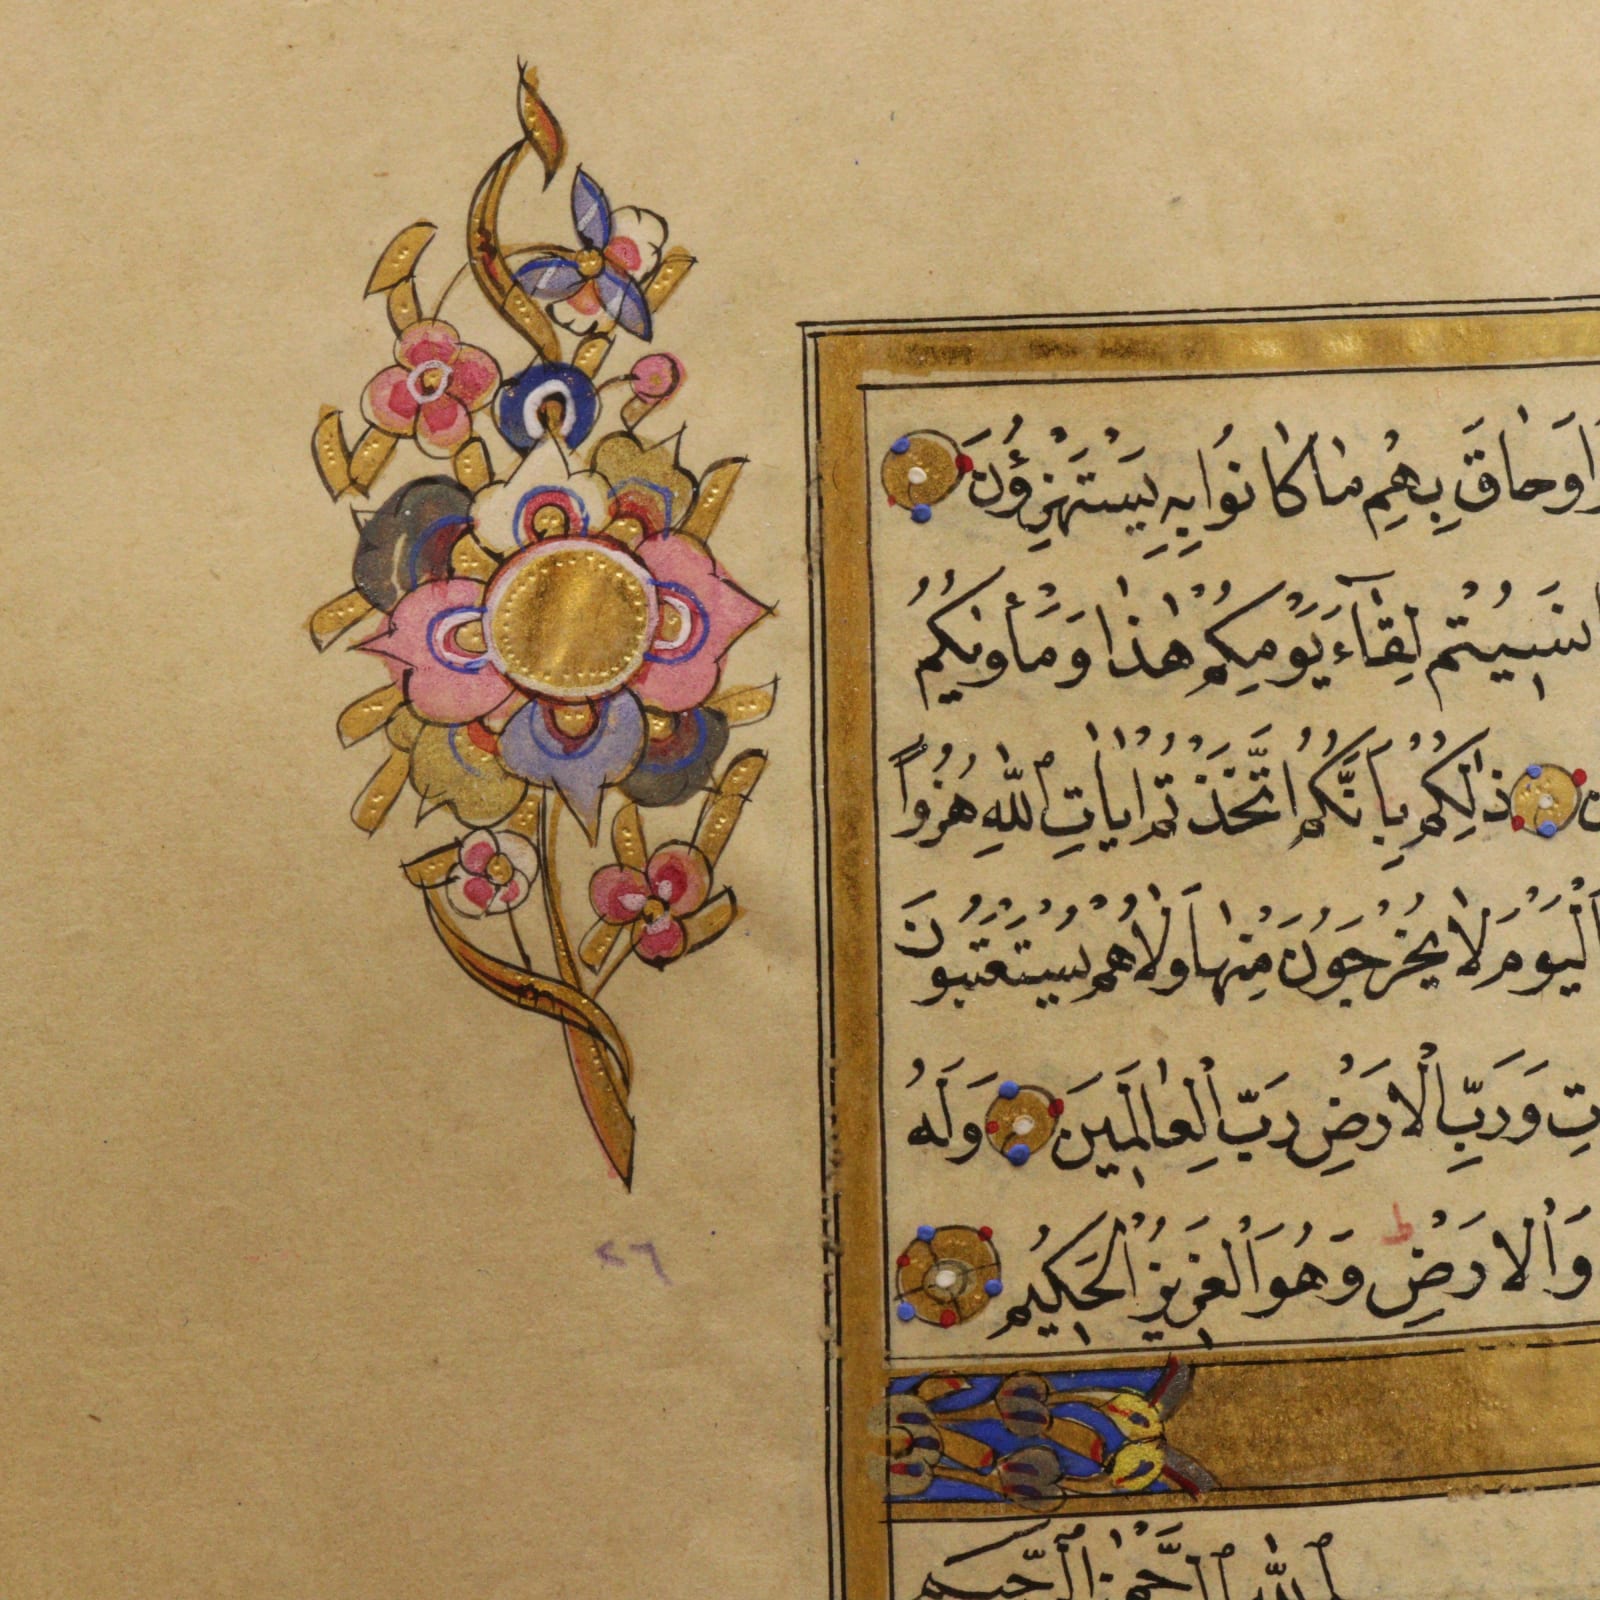 وَحَاقَ بِهِمْ مَا كَانُوا بِهِ يَسْتَهْزِؤُنَ
نَسِيتُمْ لِقَاءَ يَوْمِكُمْ هٰذَا وَمَأْوٰيكُمُ
ذٰلِكُمْ بِاَنَّكُمُ اتَّخَذْتُمْ اٰيَاتِ اللّٰهِ هُزُوًا
الْيَوْمَ لَا يُخْرَجُونَ مِنْهَا وَلَا هُمْ يُسْتَعْتَبُونَ
وَرَبِّ الْاَرْضِ رَبِّ الْعَالَمِينَ وَلَهُ
وَالْاَرْضِ ط وَهُوَ الْعَزِيزُ الْحَكِيمُ
اللّٰهِ الرَّحْمٰنِ الرَّحِيمِ